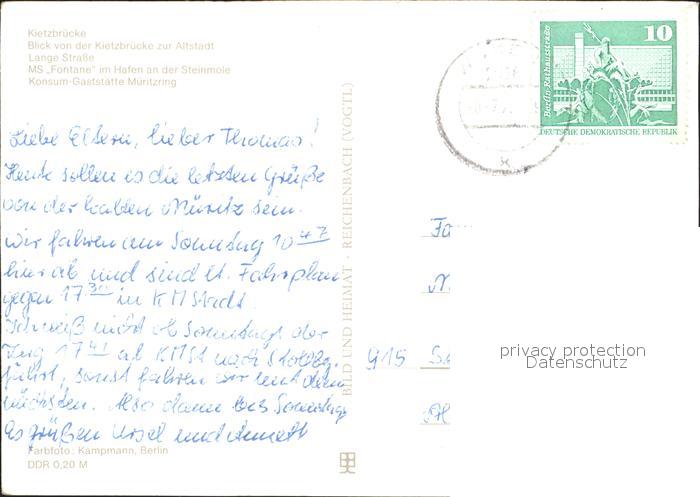 Kietzbrücke
Blick von der Kietzbrücke zur Altstadt
Lange Straße
MS „Fontane" im Hafen an der Steinmole
Konsum-Gaststätte Müritzring
Berlin, Rathausstraße
10
DEUTSCHE DEMOKRATISCHE REPUBLIK
Liebe Eltern, lieber Thomas!
Heute sollen es die letzten Grüße
von der kalten Müritz sein.
Wir fahren am Sonntag 10 47
hier ab und sind lt. Fahrplan
gegen 17 30 in KMStadt.
Ich weiß nicht ob Sonntags der
Zug 17 41 ab KMSt nach Stollbg.
fährt, sonst fahren wir mit dem
nächsten. Also dann bis Sonntag
Es grüßen Ursel und Annett
BILD UND HEIMAT · REICHENBACH (VOGTL)
Fa
915
privacy protection
Datenschutz
Farbfoto: Kampmann, Berlin
DDR 0,20 M